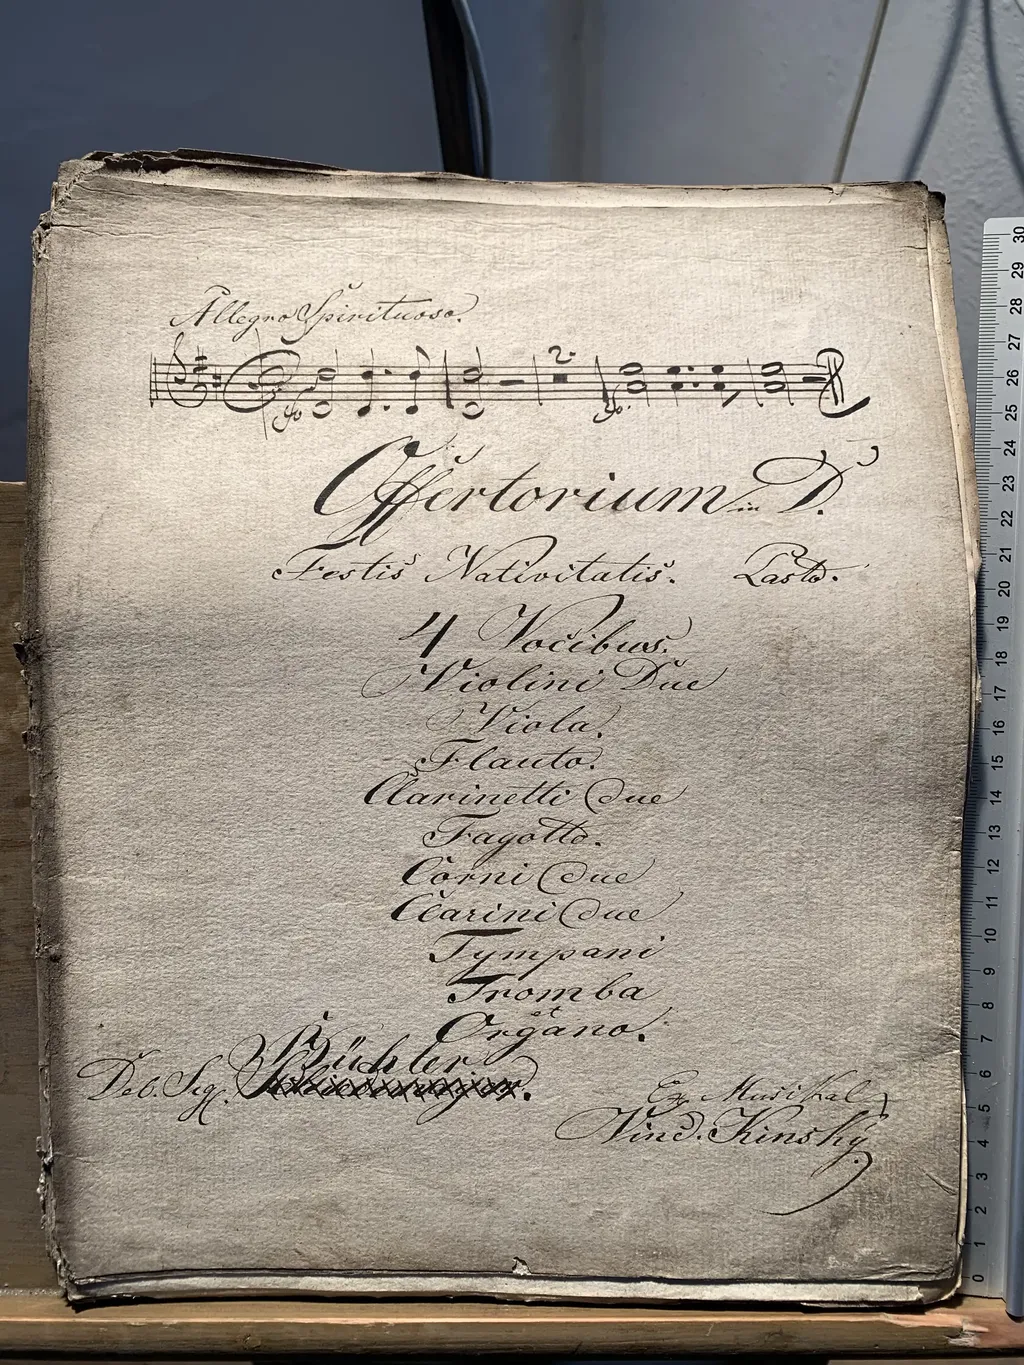 Allegro Spirituoso.
2.
fo
fo.
Offertorium in D.
Festis Nativitatis.
4 Vocibus.
Violini Due
Viola.
Flauto.
Clarinetti Due
Fagotto.
Corni Due
Clarini Due
Tympani
Tromba
et
Organo.
Bühler
Del. Sig.
Ex Musikal
Vind. Kinsky
30
29
28
27
26
25
24
23
22
21
20
19
18
17
16
15
14
13
12
11
10
9
8
7
6
5
4
3
2
1
0